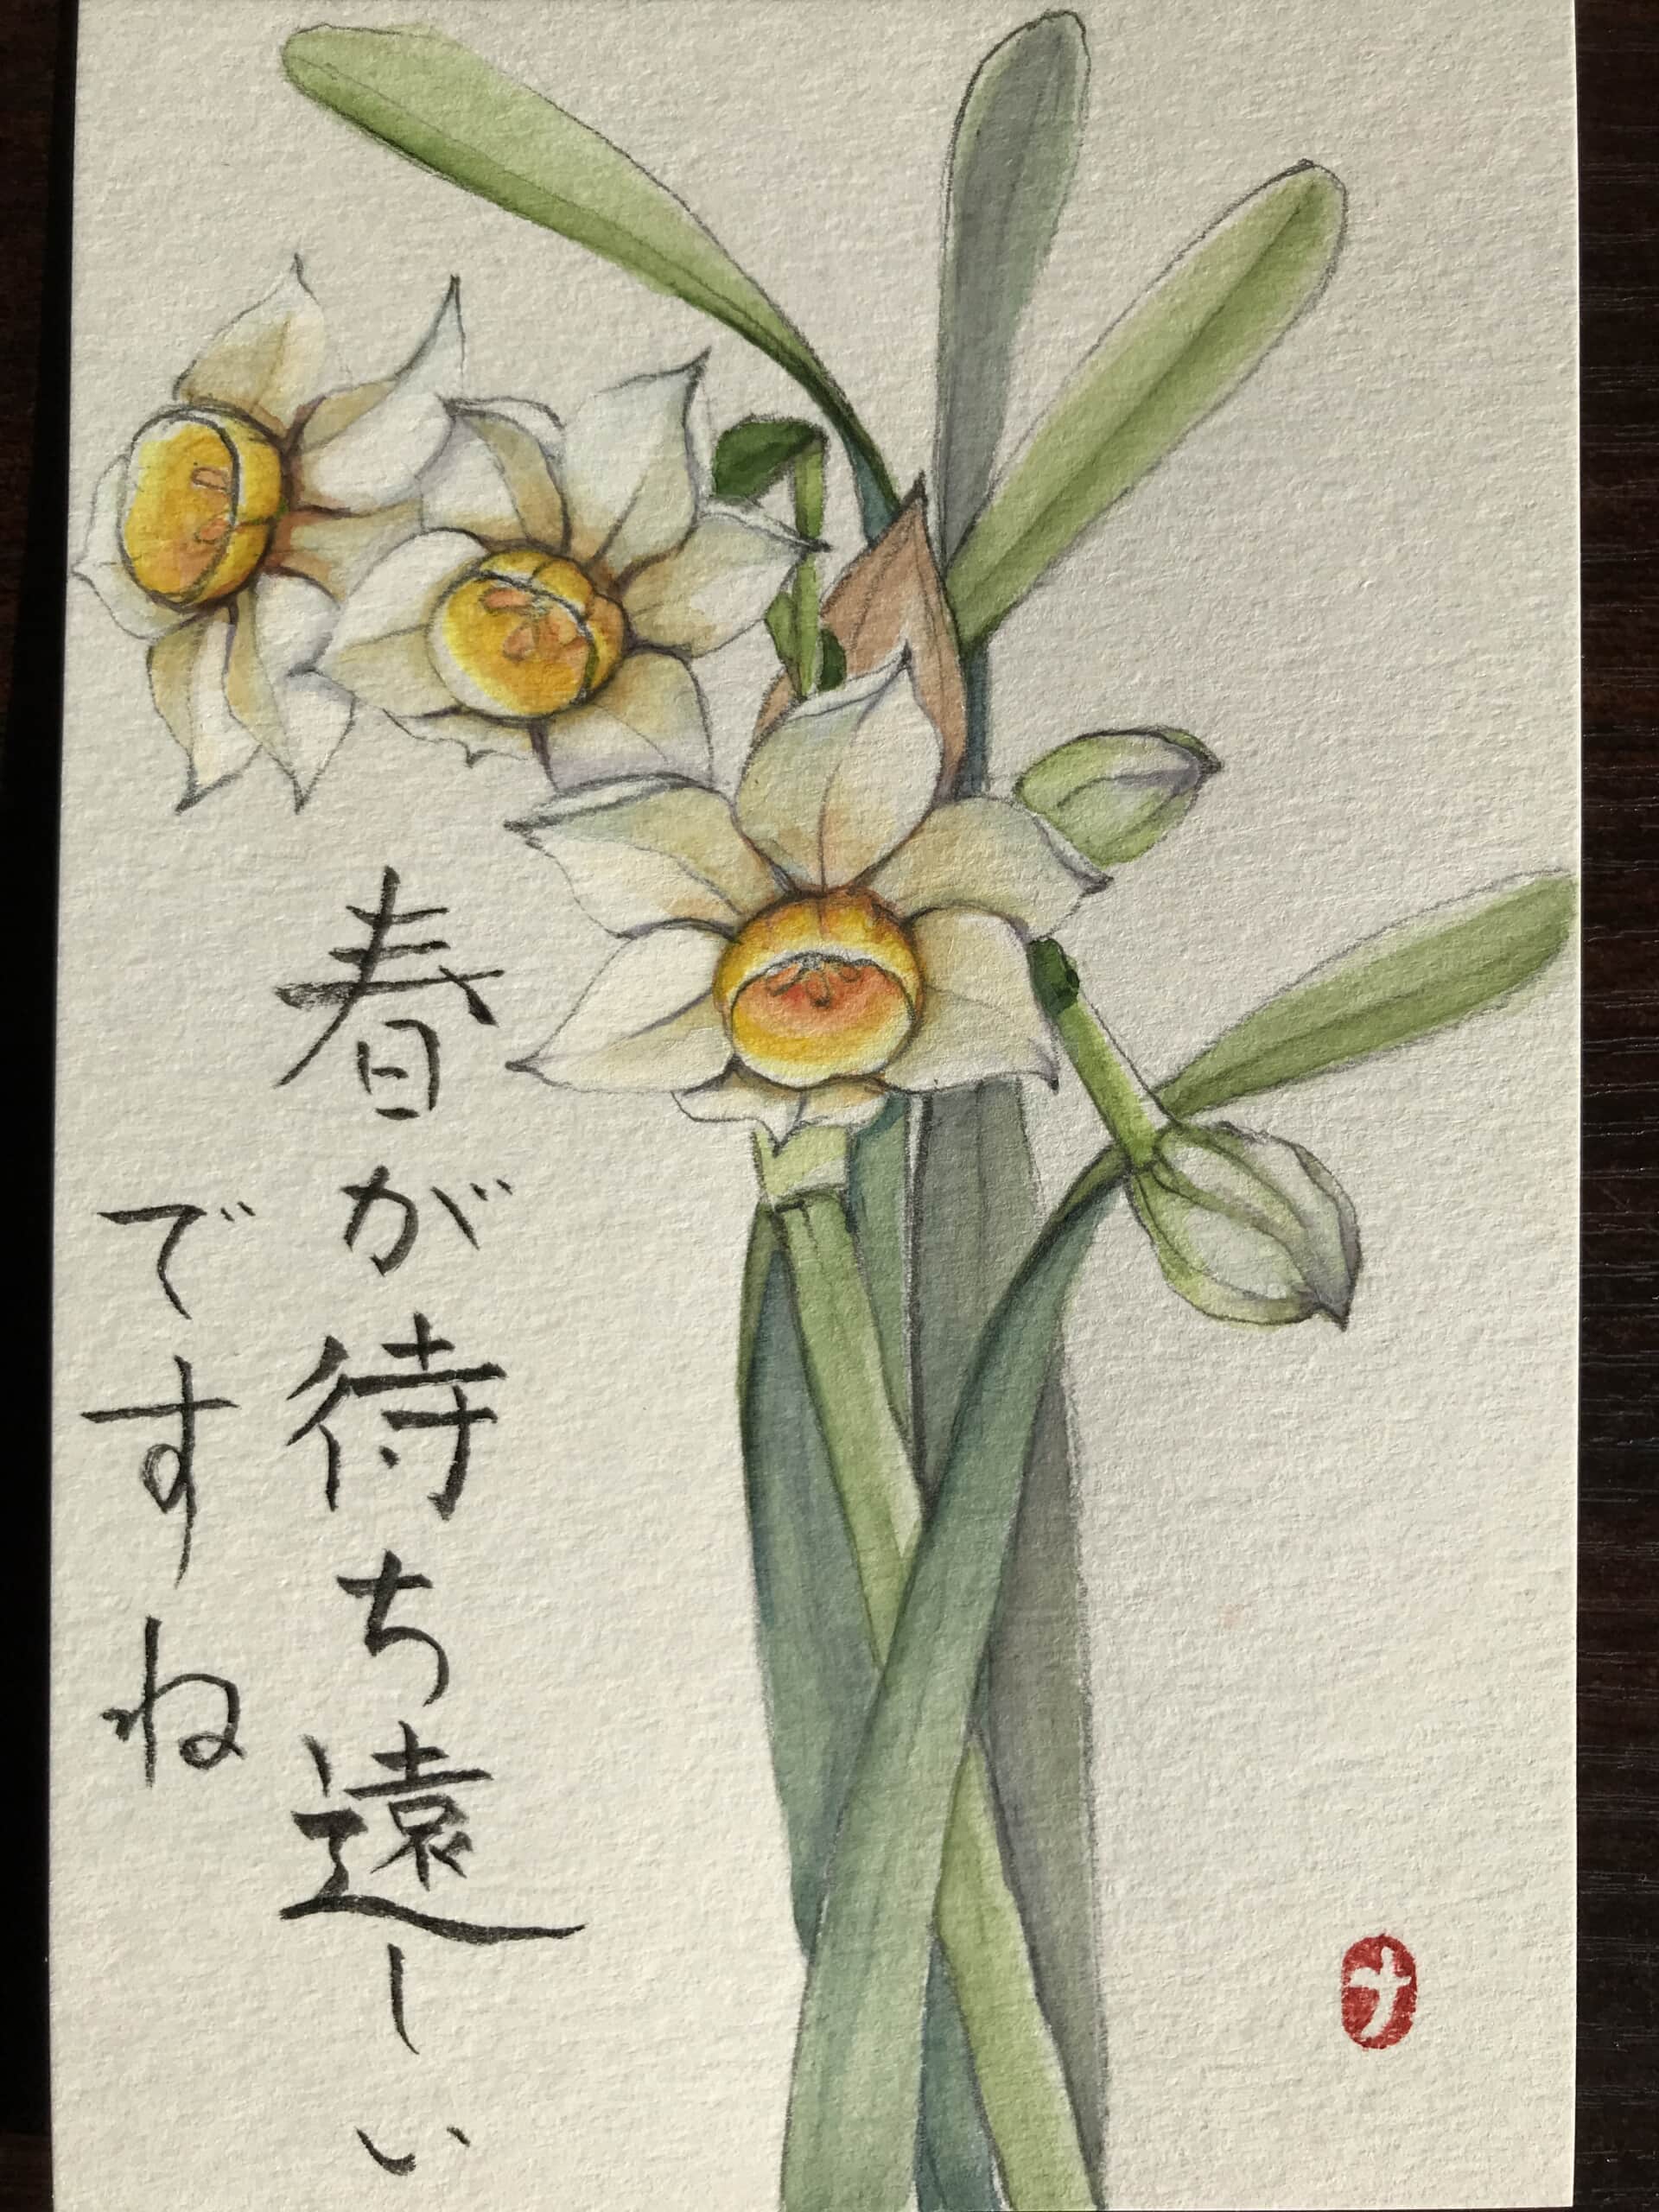 春が待ち遠しい
ですね
ナ